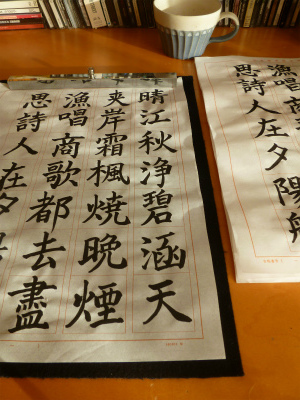 晴江秋浄碧涵天
夾岸霜楓燒晚煙
漁唱商歌都去盡
思詩人在夕
漁唱
思詩人在夕陽船